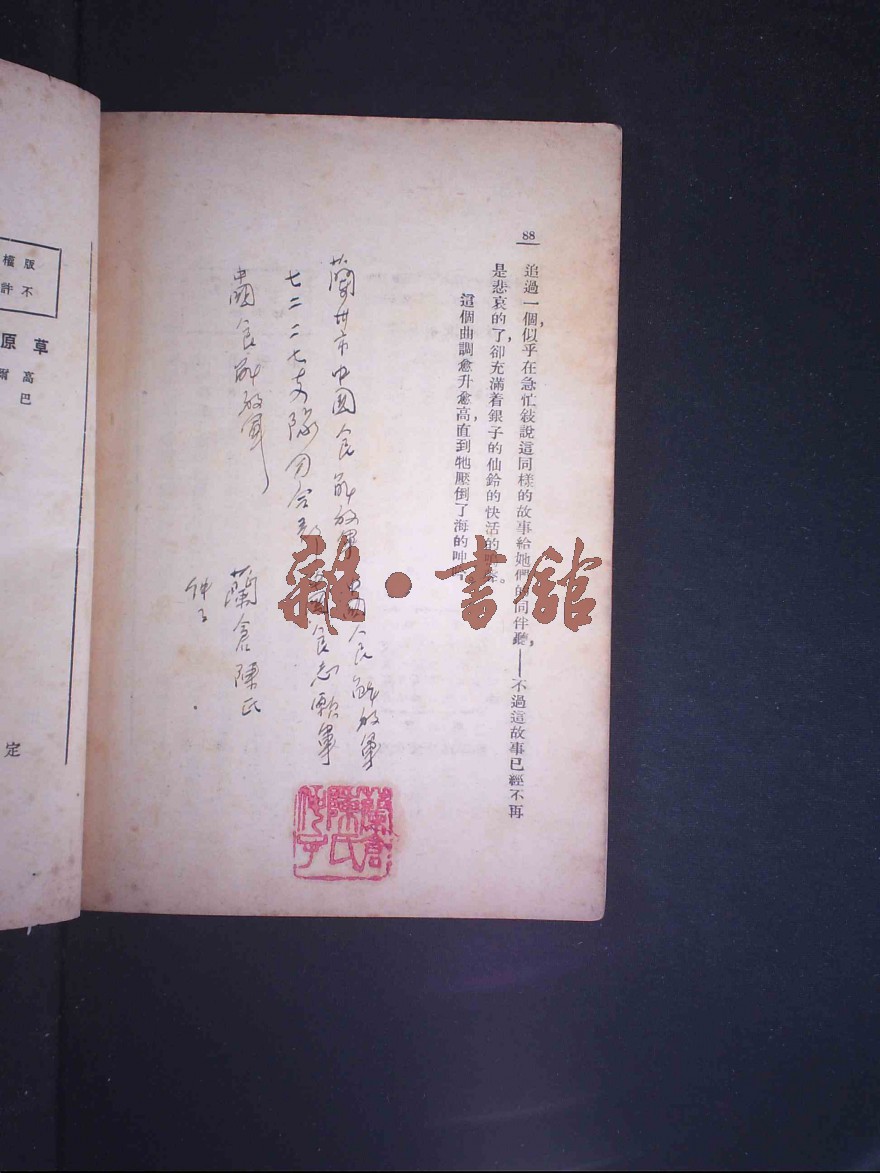 88
追過一個,似乎在急忙敍說這同樣的故事給她們的同伴聽,——不過這故事已經不再
是悲哀的了,卻充滿着銀子的仙鈴的快活的
這個曲調愈升愈高,直到牠壓倒了海的呻
蘭州市中国人民解放軍中國人民解放軍
七二二七支隊 人民志願軍
中國人民解放軍
蘭倉陳氏
仲子
蘭倉
陳氏
仲子
雜·書館
版權
不許
草原
高爾
巴
定